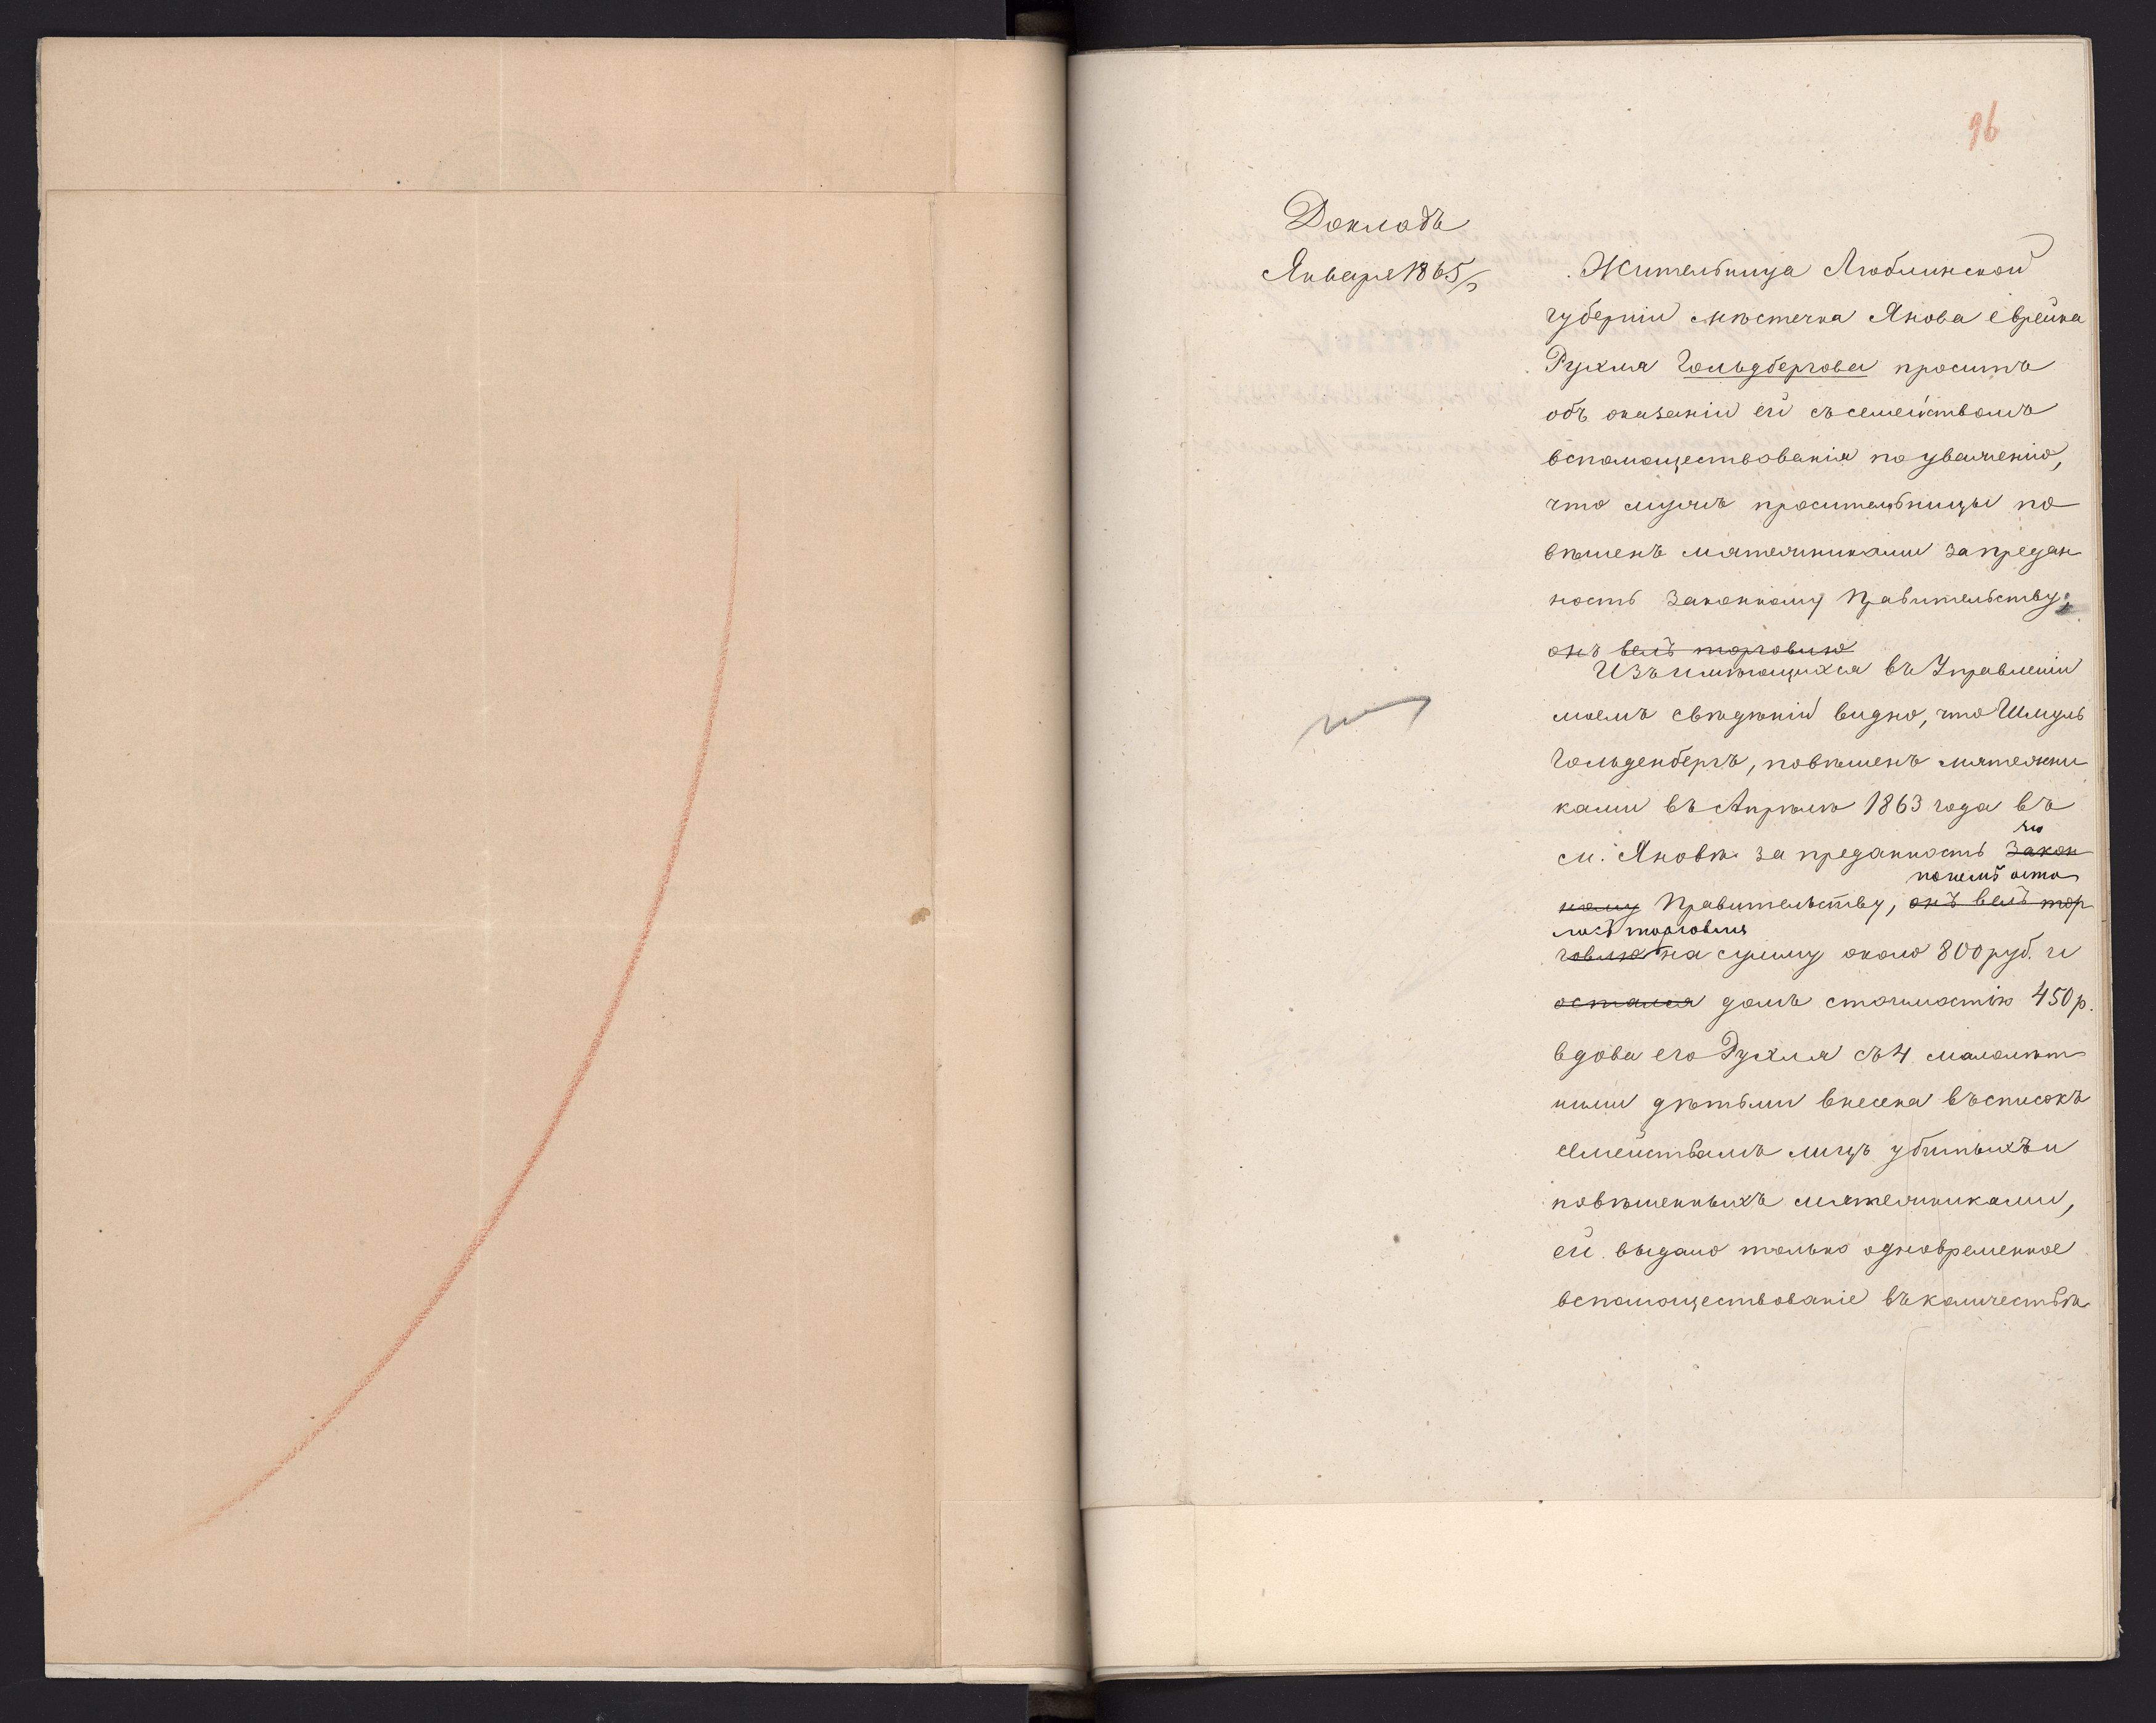 96
Докладъ
Января 1865/
Жительница Люблинской
губерніи мѣстечка Янова еврейка
Рухля Гольдбергова проситъ
объ оказаніи ей съ семействомъ
вспомоществованія по уваженію,
что мужъ просительницы по
вѣшенъ мятежниками за предан
ность Законному Правительству;
онъ велъ торговлю
Изъ имѣющихся въ Управленіи
моемъ свѣдѣній видно, что Шмуль
Гольденбергъ, повѣшенъ мятежни
ками въ Апрѣлѣ 1863 года въ
м. Яновѣ за преданность Закон
по немъ оста
ному Правительству, онъ велъ тор
лась торговля
говлю на сумму около 800 руб. и
остался домъ стоимостію 450 р.
вдова его Рухля съ 4 малолѣт
ними дѣтьми внесена въ списокъ
семействамъ лицъ убитыхъ и
повѣшенныхъ мятежниками,
ей выдано только одновременное
вспомоществованіе въ количествѣ